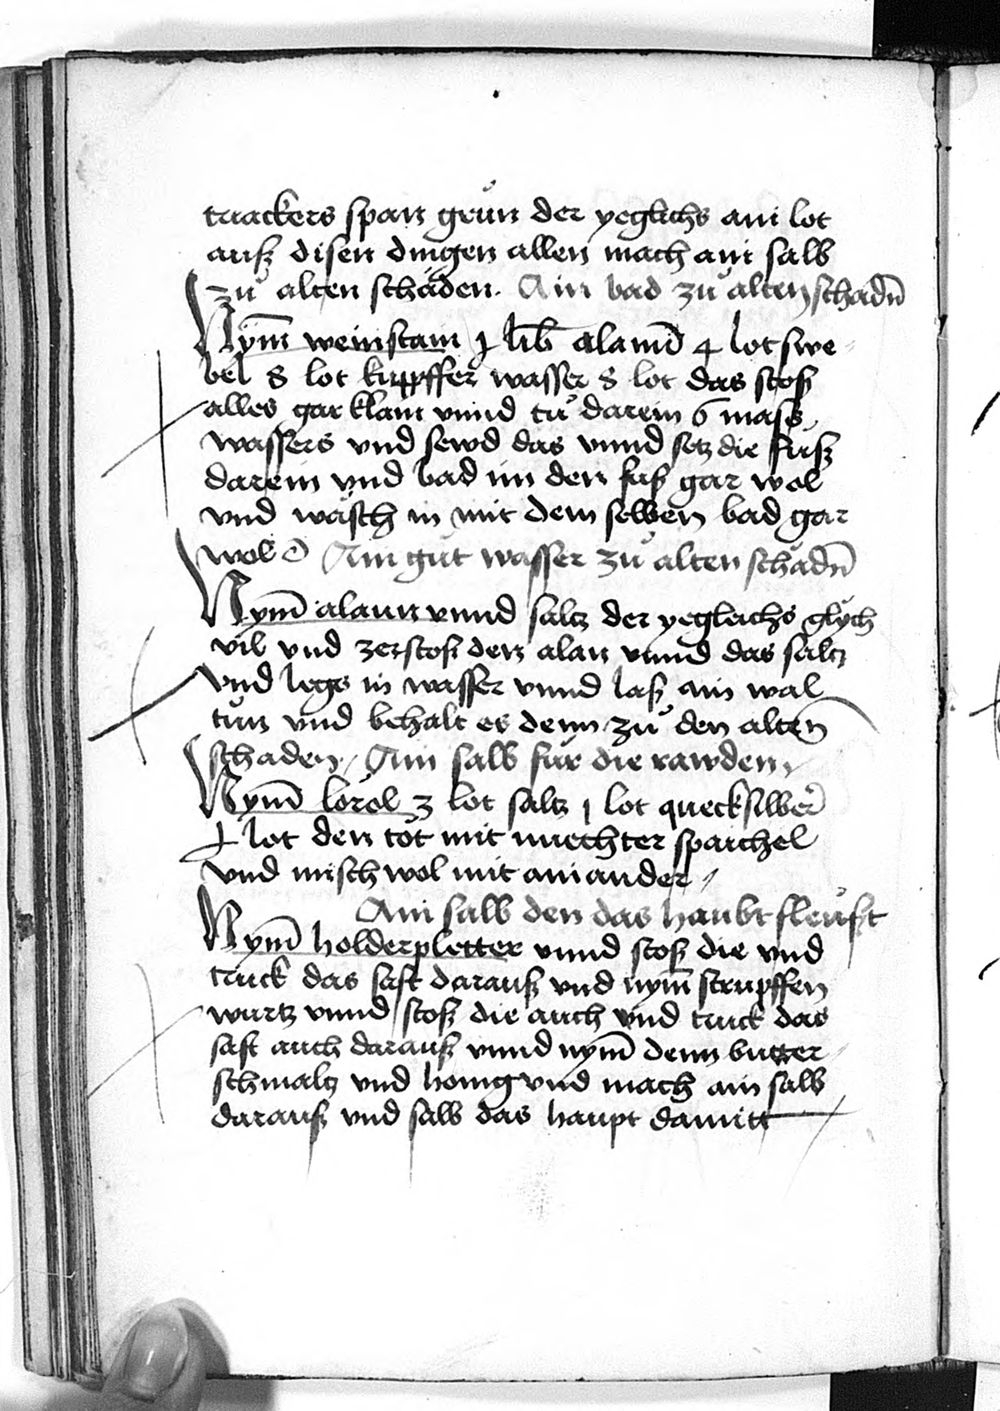 truckers span grün der yeglichs ain lot
auß disen dingen allen mach ain salb
zů alten schäden. Ain bad zů alten schadn̄
Nym̄ weinstain j lib̄ alamd̄ 4 lot swe-
bel 8 lot kupffer wasser 8 lot das stoß
alles gar klain vnnd tů darein 6 mass
wassers vnd sewd das vnnd setz die füß
darein vnd bad im den fuß gar wol
vnd wäsch in mit dem selben bad gar
wol Ain gůt wasser zů alten schädn̄
Nym̄ alaun vnnd saltz der yegleichs glych
vil vnd zerstoß den alan vnnd das saltz
vnd legs in wasser vnnd laß ain wal
tůn vnd behalt es denn zů den alten
schaden. Ain salb für die rawden
Nym̄ loröl 3 lot saltz j lot quecksilber̄
j lot den töt mit nuechter spaichel
vnd misch wol mit ainander
Ain salb den das haubt fleüßt
Nym̄ holderpletter vnnd stoß die vnd
truck das saft darauß vnd nym̄ strupffen
wurtz vnnd stoß die auch vnd truck das
saft auch darauß vnnd nym̄ denn butter
schmaltz vnd honig vnd mach ain salb
darauß vnd salb das haupt damitt